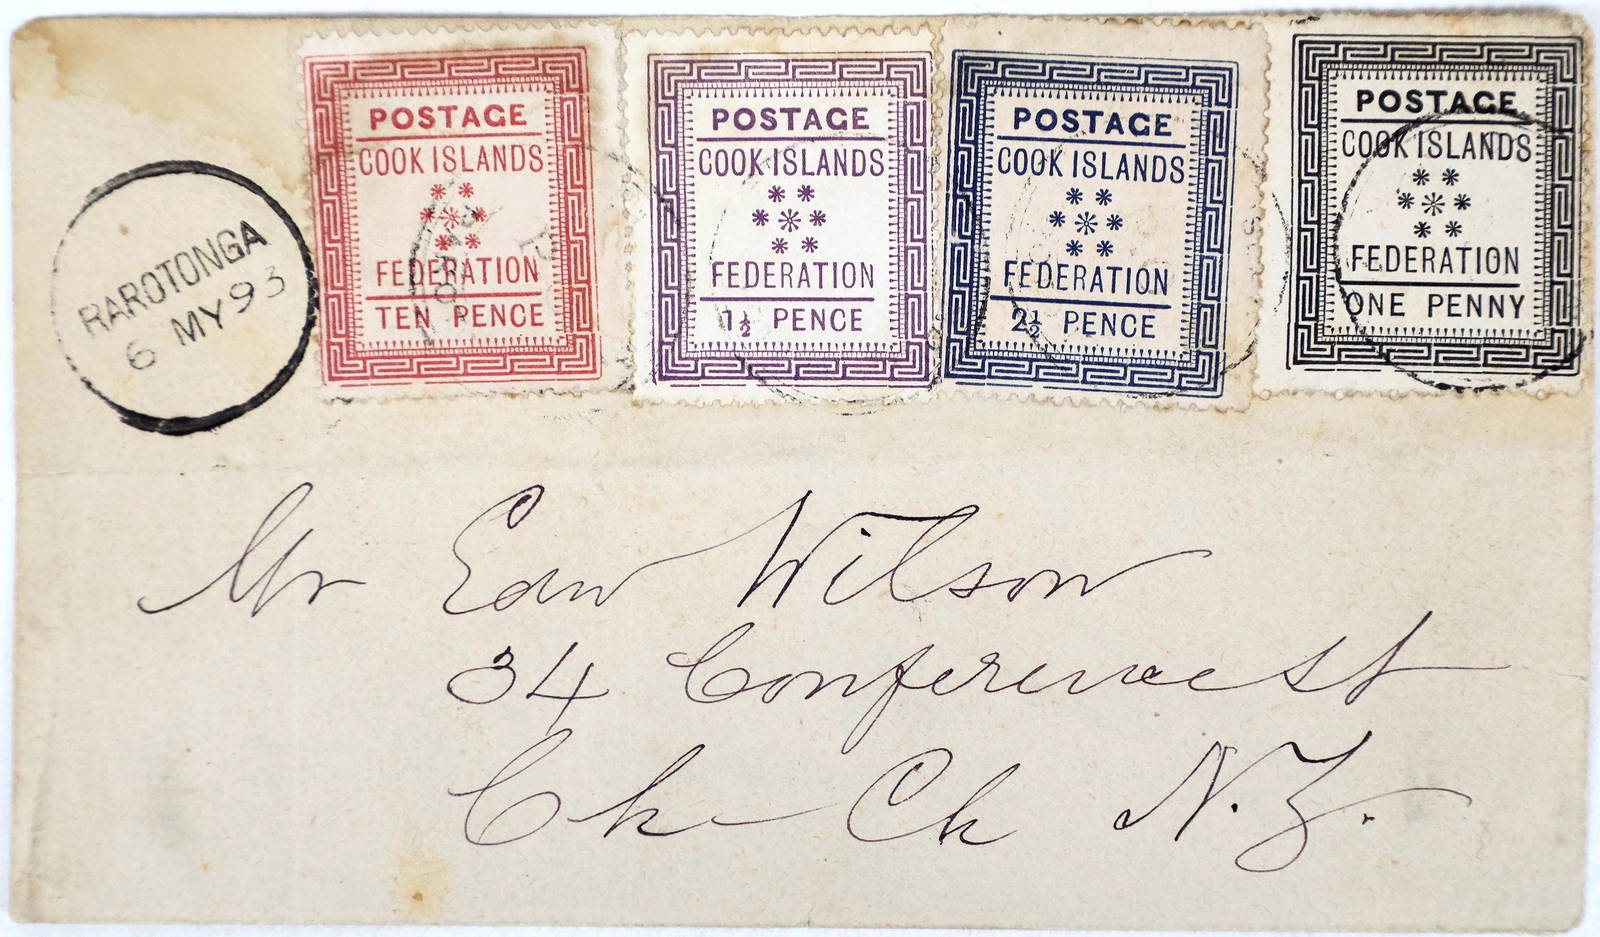 POSTAGE
COOK ISLANDS
FEDERATION
TEN PENCE
POSTAGE
COOK ISLANDS
FEDERATION
1½ PENCE
POSTAGE
COOK ISLANDS
FEDERATION
2½ PENCE
POSTAGE
COOK ISLANDS
FEDERATION
ONE PENNY
RAROTONGA
6 MY 93
Mr Edw Wilson
34 Conference St
Ch Ch N.Z.